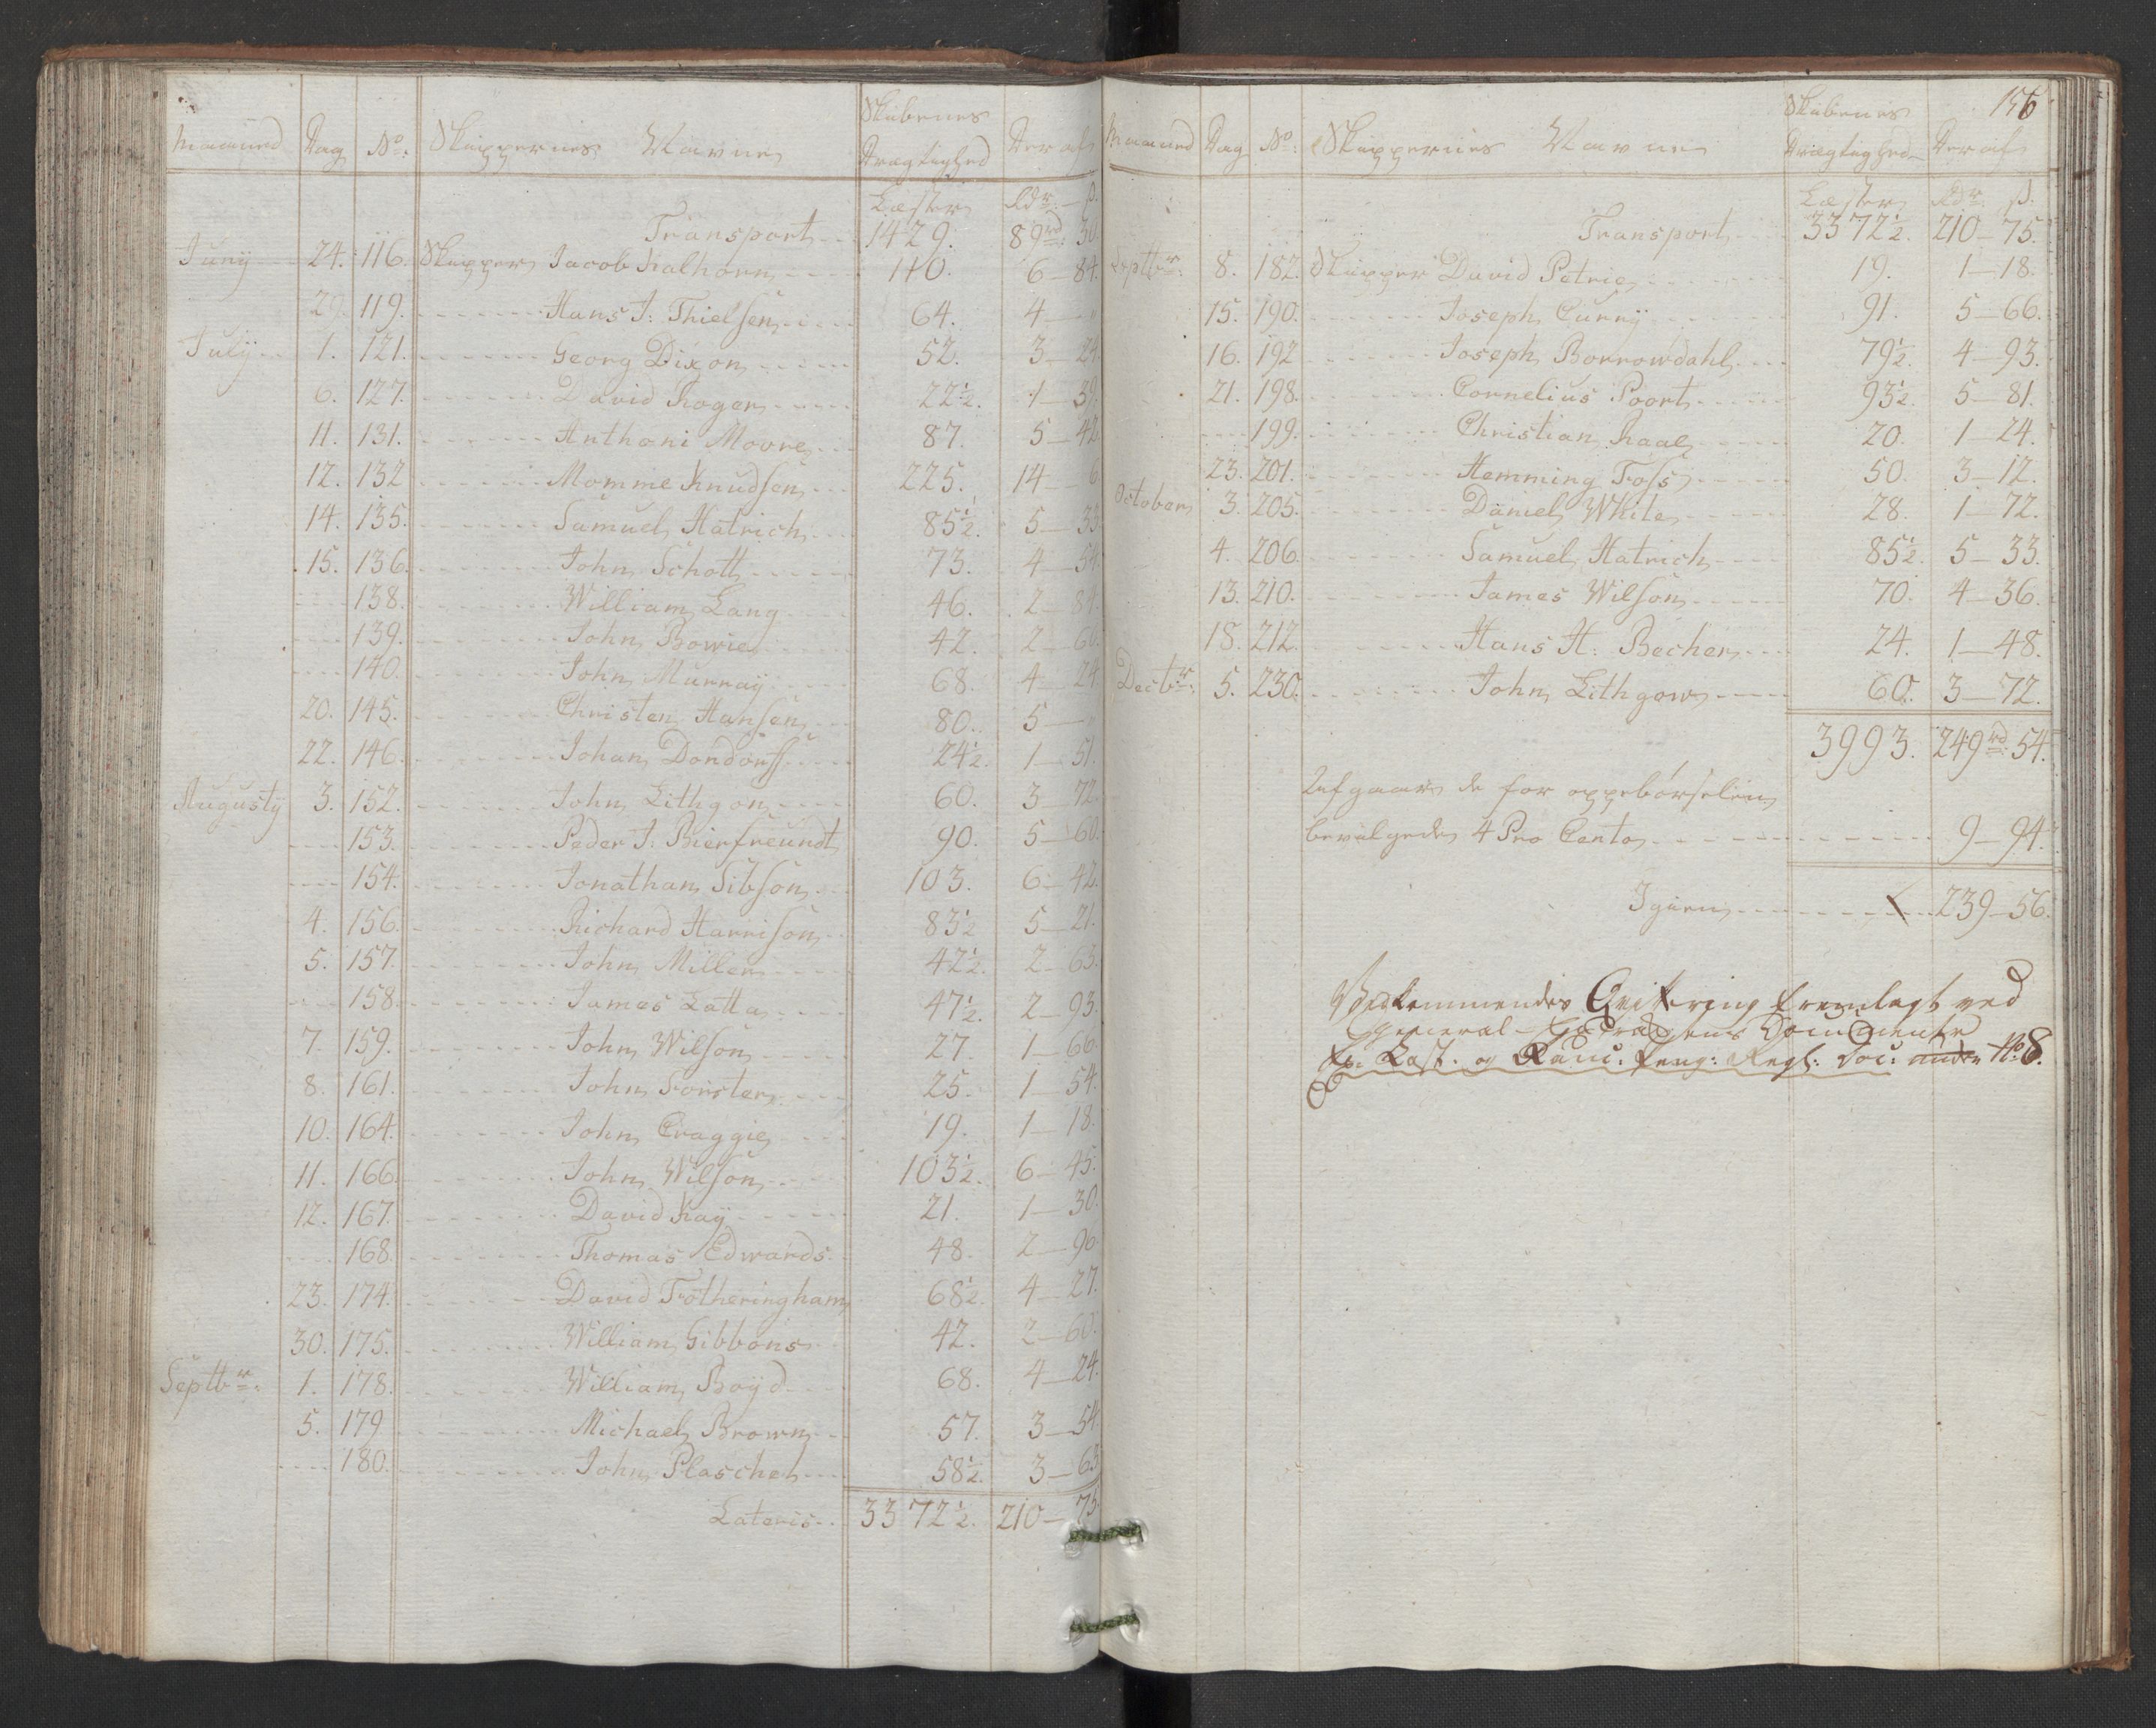 Skibenes
Maaned Dag No: Skippernes Navne Drægtighed Deraf
Læster Rdr: – ß.
Transport 1429. 89rd: 30.
Juny 24. 116. Skipper Jacob Kalhorn 110. 6 – 84.
29. 119. Hans J: Thielsen 64. 4 –
July 1. 121. Georg Dixon 52. 3 – 24.
6. 127. David Roger 22½. 1 – 39.
11. 131. Anthoni Moore 87. 5 – 42.
12. 132 Momme Knudsen 225. 14 – 6.
14. 135. Samuel Hatrich 85½. 5 – 33
15. 136. John Schott 73. 4 – 54.
138. William Lang 46. 2 – 84.
139. John Bowie 42. 2 – 60.
140. John Murray 68. 4 – 24
20. 145. Christen Hansen 80. 5 –
22. 146. John Dondorff 24½. 1 – 51.
Augusty 3. 152. John Lithgon 60. 3 – 72.
153. Peder J: Bierfreundt 90. 5 – 60.
154. Jonathan Sibson 103. 6 – 42.
4. 156. Richard Harrison 83½ 5 – 21.
5. 157. John Miller 42½. 2 – 63.
158. James Latta 47½. 2 – 93.
7. 159. John Wilson 27. 1 – 66.
8. 161. John Forster 25. 1 – 54.
10. 164. John Craggie 19. 1 – 18.
11. 166. John Wilson 103½. 6 – 45.
12. 167. David Kay 21. 1 – 30.
168. Thomas Edwards 48. 2 – 96
23. 174. David Fotheringham 68½. 4 – 27.
30. 175. William Gibbons 42. 2 – 60.
Septbr: 1. 178. William Boyd 68. 4 – 24.
5. 179 Michael Brown 57. 3 – 54.
180. John Plaschet 58½. 3 – 63
Lateris 3372½. 210 – 75.
156
Skibenes
Maaned Dag No: Skippernes Navne Drægtighed Deraf
Læster Rdr: ß.
Transport 3372½. 210 – 75.
Septbr: 8. 182. Skipper David Petrie 19. 1 – 18.
15. 190. Joseph Curry 91. 5 – 66.
16. 192 Joseph Borrowdahl 79½. 4 – 93.
21. 198. Cornelius Poort 93½. 5 – 81.
199. Christian Raae 20. 1 – 24.
23. 201. Hemming Foss 50. 3 – 12.
October 3. 205. Daniel White 28. 1 – 72.
4. 206. Samuel Hatrich 85½. 5 – 33.
13. 210. James Wilson 70. 4 – 36.
18. 212. Hans H: Becher 24. 1 – 48.
Decbr: 5. 230. John Lithgow 60. 3 – 72.
3993. 249rd: 54.
Afgaar de for oppebørselen
bevilgede 4 Pro Cento 9 – 94.
Igien 239 – 56.
Vedkommendes Qvittering fremlagt ved
General – Documente
Last. og Reng: Regl: Doc: under No 8.